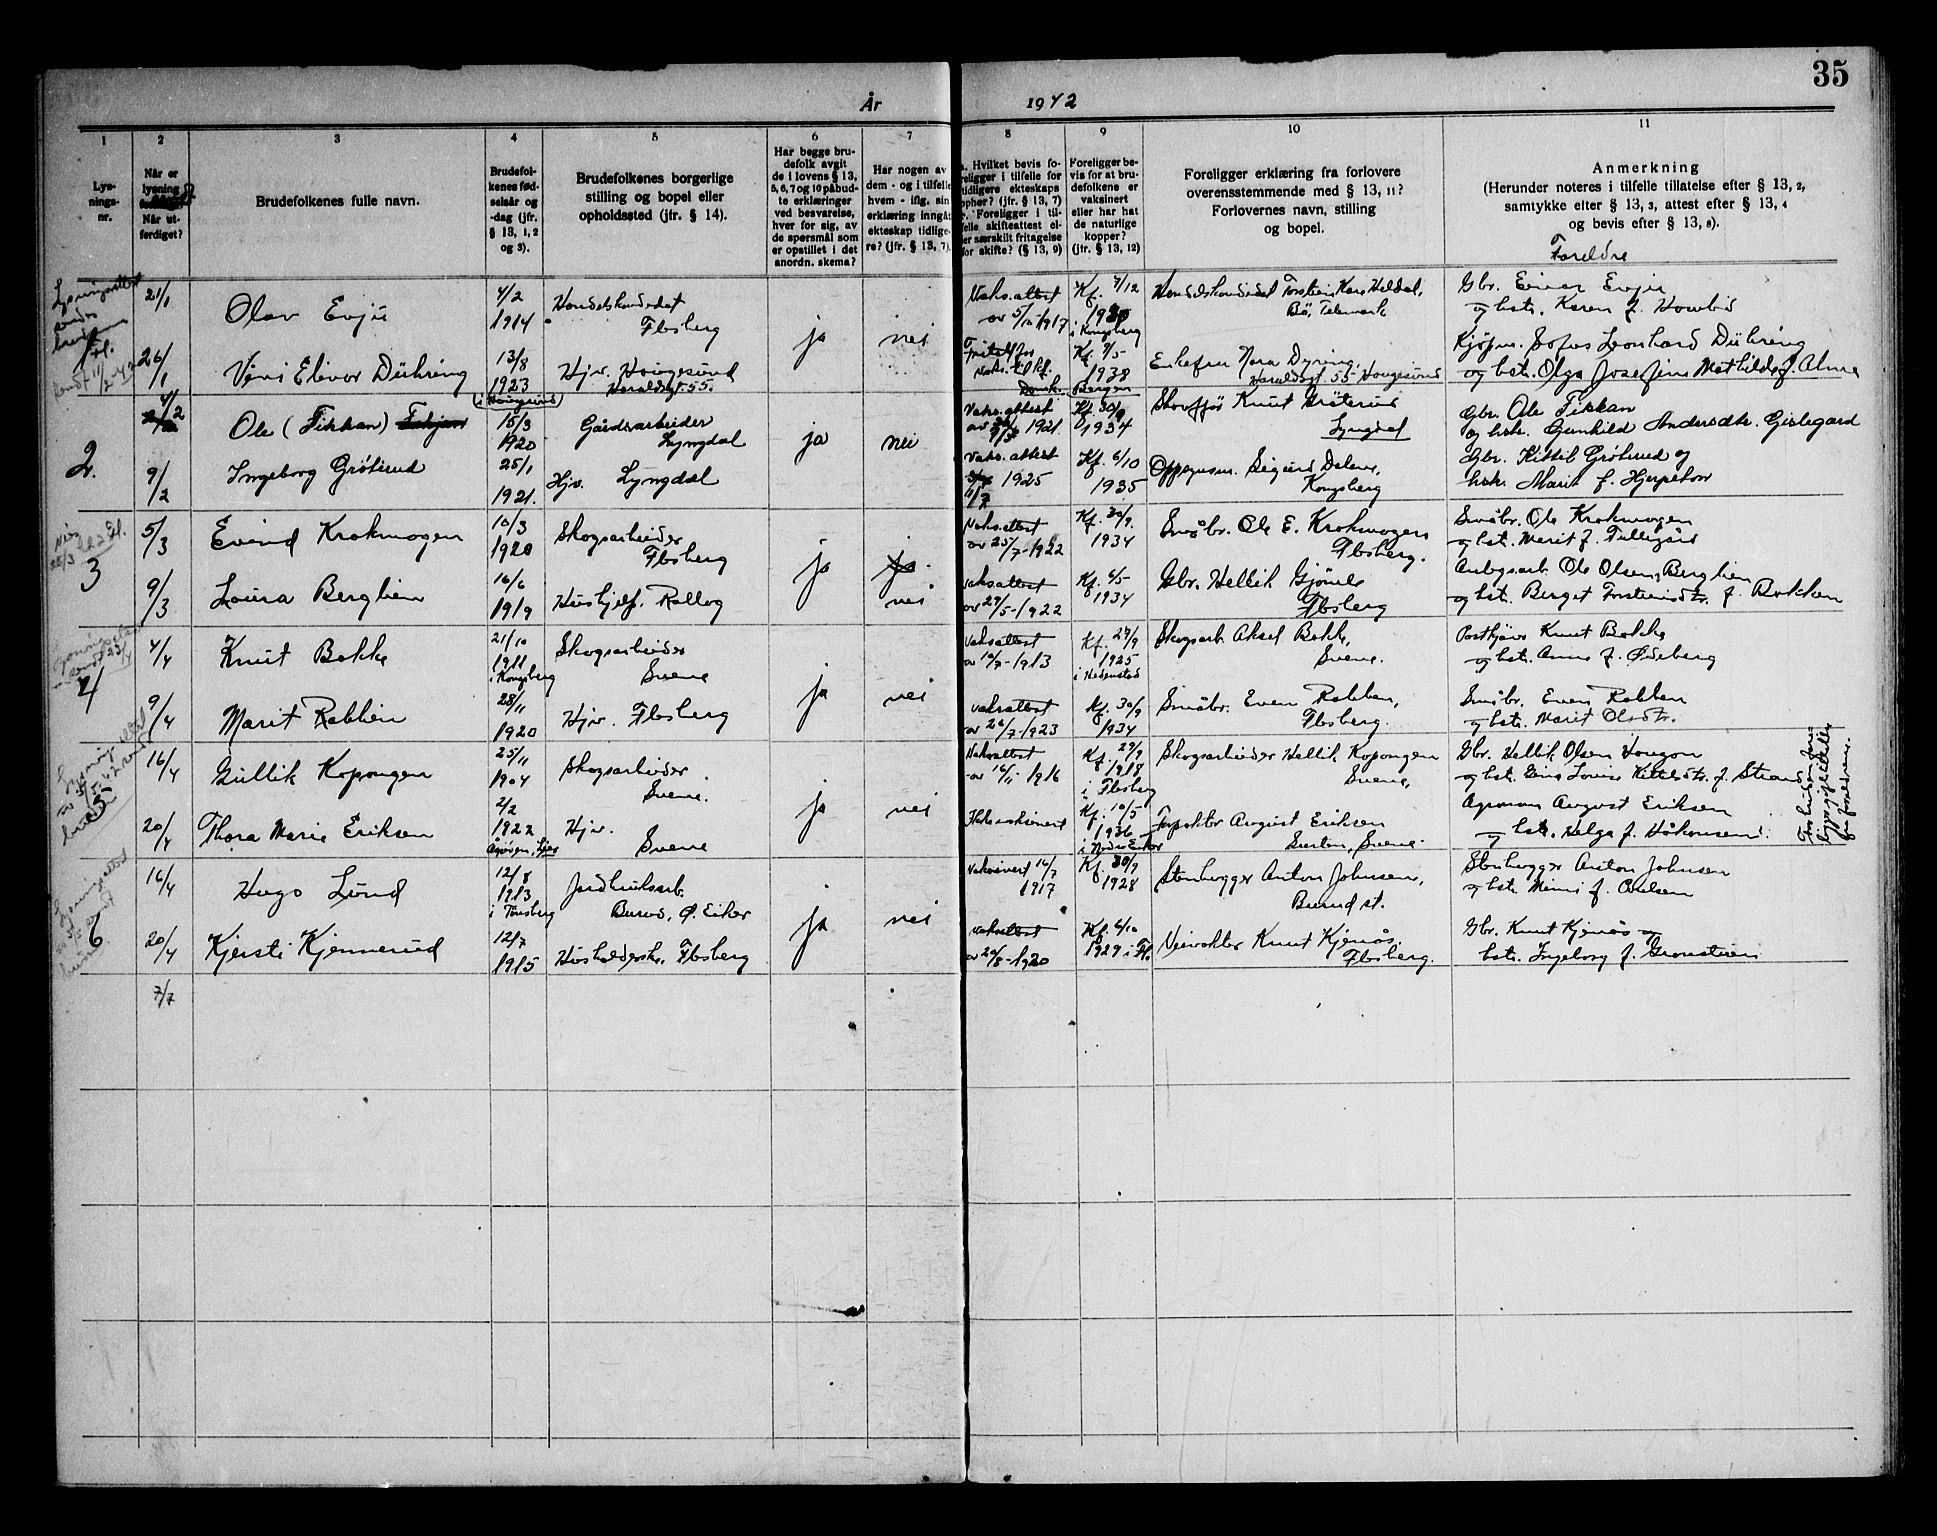 35
År 1942
1
2
3
4
5
6
7
8
9
10
11
Lys-
nings-
nr.
Når er
lysning
Når ut-
ferdiget?
Brudefolkenes fulle navn.
Brudefol-
kenes fød-
selsår og
-dag (jfr.
§ 13, 1, 2
og 3).
Brudefolkenes borgerlige
stilling og bopel eller
opholdssted (jfr. § 14).
Har begge bru-
defolk avgit
de i lovens § 13,
5, 6, 7 og 10 påbud-
te erklæringer
ved besvarelse,
hver for sig, av
de spørsmål som
er opstillet i det
anordn. skema?
Har nogen av
dem - og i tilfelle
hvem - iflg. sin
erklæring inngått
ekteskap tidlige-
re? (jfr. § 13, 7).
Hvilket bevis fo-
religger i tilfelle for
tidligere ekteskaps
ophør? (jfr. § 13, 7)
Foreligger i til-
felle skifteattest el-
ler særskilt fritagelse
for skifte? (§ 13, 9)
Foreligger be-
vis for at bru-
defolkene er
vaksinert
eller har hat
de naturlige
kopper?
(jfr. § 13, 12)
Foreligger erklæring fra forlovere
overensstemmende med § 13, 11?
Forlovernes navn, stilling
og bopel.
Anmerkning
(Herunder noteres i tilfelle tillatelse efter § 13, 2,
samtykke efter § 13, 3, attest efter § 13, 4
og bevis efter § 13, 8).
Foreldre
21/1 Olav Evju 4/2 1914 Handelskandidat Flesberg ja nei
Vaks.attest Kf. 4/12 i Kongsberg
Bø, Telemark
Gbr. Einar Evju
og hstr. Karen f.
26/1 Vivi Elinor Dühring 13/8 1923 Hjv. Haugesund
i Haugesund Haraldsgt. 55.
Kf. 1938 Bergen
Haraldsgt. 55 Haugesund
Kjøpm. Sofus Leonhard Dühring
og hstr. Olga Josefine Mathilde f.
2. Ole (Fikkan) 15/3 1920 Gårdsarbeider Lyngdal ja nei
Vaks.attest 1921. Kf. 1934
Knut Grøterud Lyngdal
Gbr. Ole Fikkan
og hstr. Gunhild Andersdtr. Gislegard
9/2 Ingeborg Grøterud 25/1 1921. Hjv. Lyngdal
Vaks. attest 1925 Kf. 6/10 1935
Sigurd Dalene, Kongsberg
Gbr. Kittil Grøterud og
hstr. Marit f.
3 5/3 Eivind Krokmogen 10/3 1920 Skogsarbeider Flesberg ja nei
Vaks.attest av 25/7-1922 Kf. 30/9. 1934
Småbr. Ole E. Krokmogen Flesberg.
Småbr. Ole Krokmogen
og hstr. Marit f.
9/3 Laura Berglien 16/6 1919 Hushjelp. Rollag
Vaksattest av 29/5-1922 Kf. 6/5 1934
Gbr. Hellik Gjønes Flesberg
Ole Olsen Berglien
og hstr. Berget Torsteinsdtr. f. Bakken
4 4/4 Knut Bakke 21/10 1911 i Kongsberg Skogsarbeider Svene ja nei
Vaksattest av 10/7-1913 Kf. 27/9 1925 i Hedenstad
Skogsarb. Aksel Bakke, Svene.
Knut Bakke
og hstr. Anne f. Ødeberg
9/4 Marit Rablien 28/11 1920 Hjv. Flesberg
vaksattest av 20/7-1923 Kf. 30/9 1934
Småbr. Even Flesberg.
Småbr. Even
og hstr. Marit Olsdtr.
5 16/4 Gullik Kopongen 25/11 1904 Skogsarbeider Svene. ja nei
Vaksattest av 16/11-1916 Kf. 29/9 1918 i Flesberg
Skogsarbeider Hellik Kopongen Svene,
Gbr. Hellik Olsen
og hstr. Gina Louise Kittelsdtr. f. Strand
20/4 Thora Marie Eriksen 2/2 1922 Hjv. Svene
Ikke vaksinert Kf. 10/5 1936 i Nedre Eiker
August Eriksen Svene.
August Eriksen
og hstr. Helga f. Håkonsen.
6 16/4 Hugo Lund 12/8 1913 i Tønsberg Jordbruksarb. Burud, Ø. Eiker ja nei
Vaksinert 16/7 1917 Kf. 30/9 1928
Stenhugger Anton Johnsen, Burud st.
Stenhugger Anton Johnsen
og hstr. Minni f.
20/4 Kjersti Kjennerud 12/7 1915 Husholdersk. Flesberg
vaksattest av 20/8-1920 Kf. 6/10 1929 i Fl.
Veivokter Knut Kjenås. Flesberg.
Gbr. Knut Kjenås og
hstr. Ingeborg f.
7/7